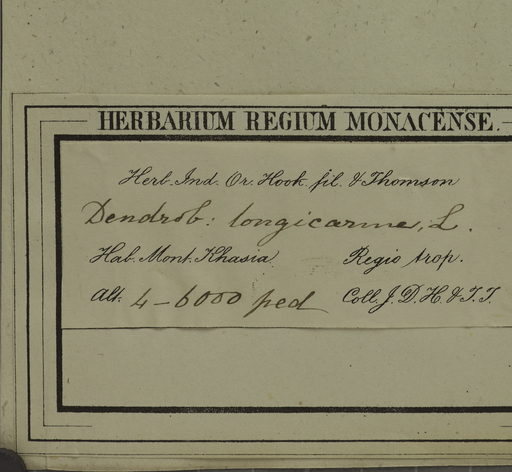 HERBARIUM REGIUM MONACENSE.
Herb. Ind. Or. Hook. fil. & Thomson
Dendrob: longicarme, L.
Hab. Mont. Khasia Regio trop.
Alt. 4-6000 ped Coll. J. D. H. & T. T.